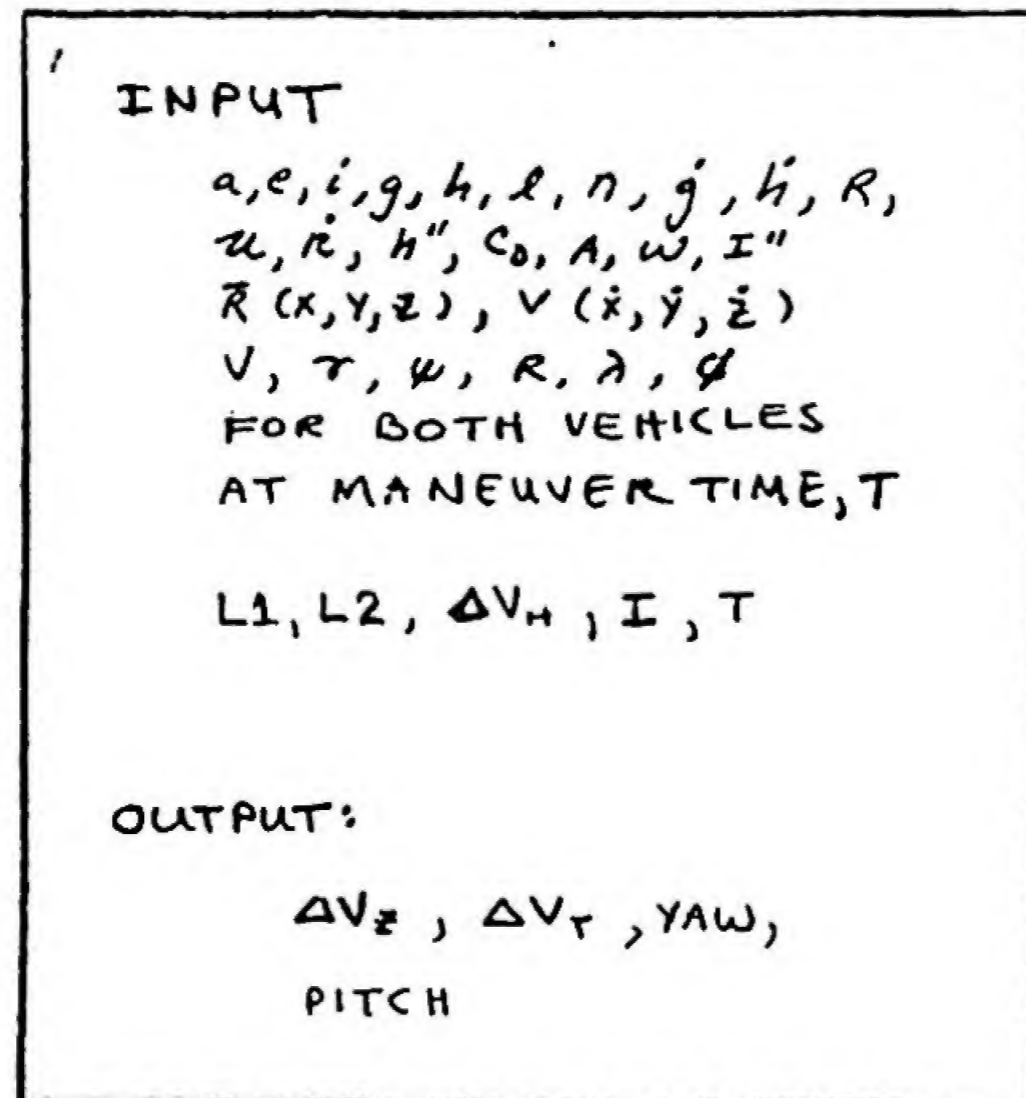 1
INPUT
a, e, i, g, h, l, n, ġ, ḣ, R,
u, ṙ, h", C_D, A, ω, I"
R̄ (X, Y, Z), V (ẋ, ẏ, ż)
V, γ, ψ, R, λ, φ
FOR BOTH VEHICLES
AT MANEUVER TIME, T
L1, L2, ΔV_H, I, T
OUTPUT:
ΔV_Z, ΔV_T, YAW,
PITCH